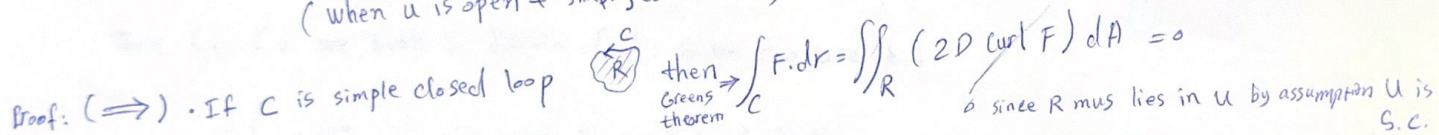 ( when u is open +
Proof: (⟹) . If C is simple closed loop C R then ⇒ Greens theorem ∫_C F.dr = ∬_R ( 2D curl F ) dA = 0
0 since R mus lies in u by assumption U is S.C.